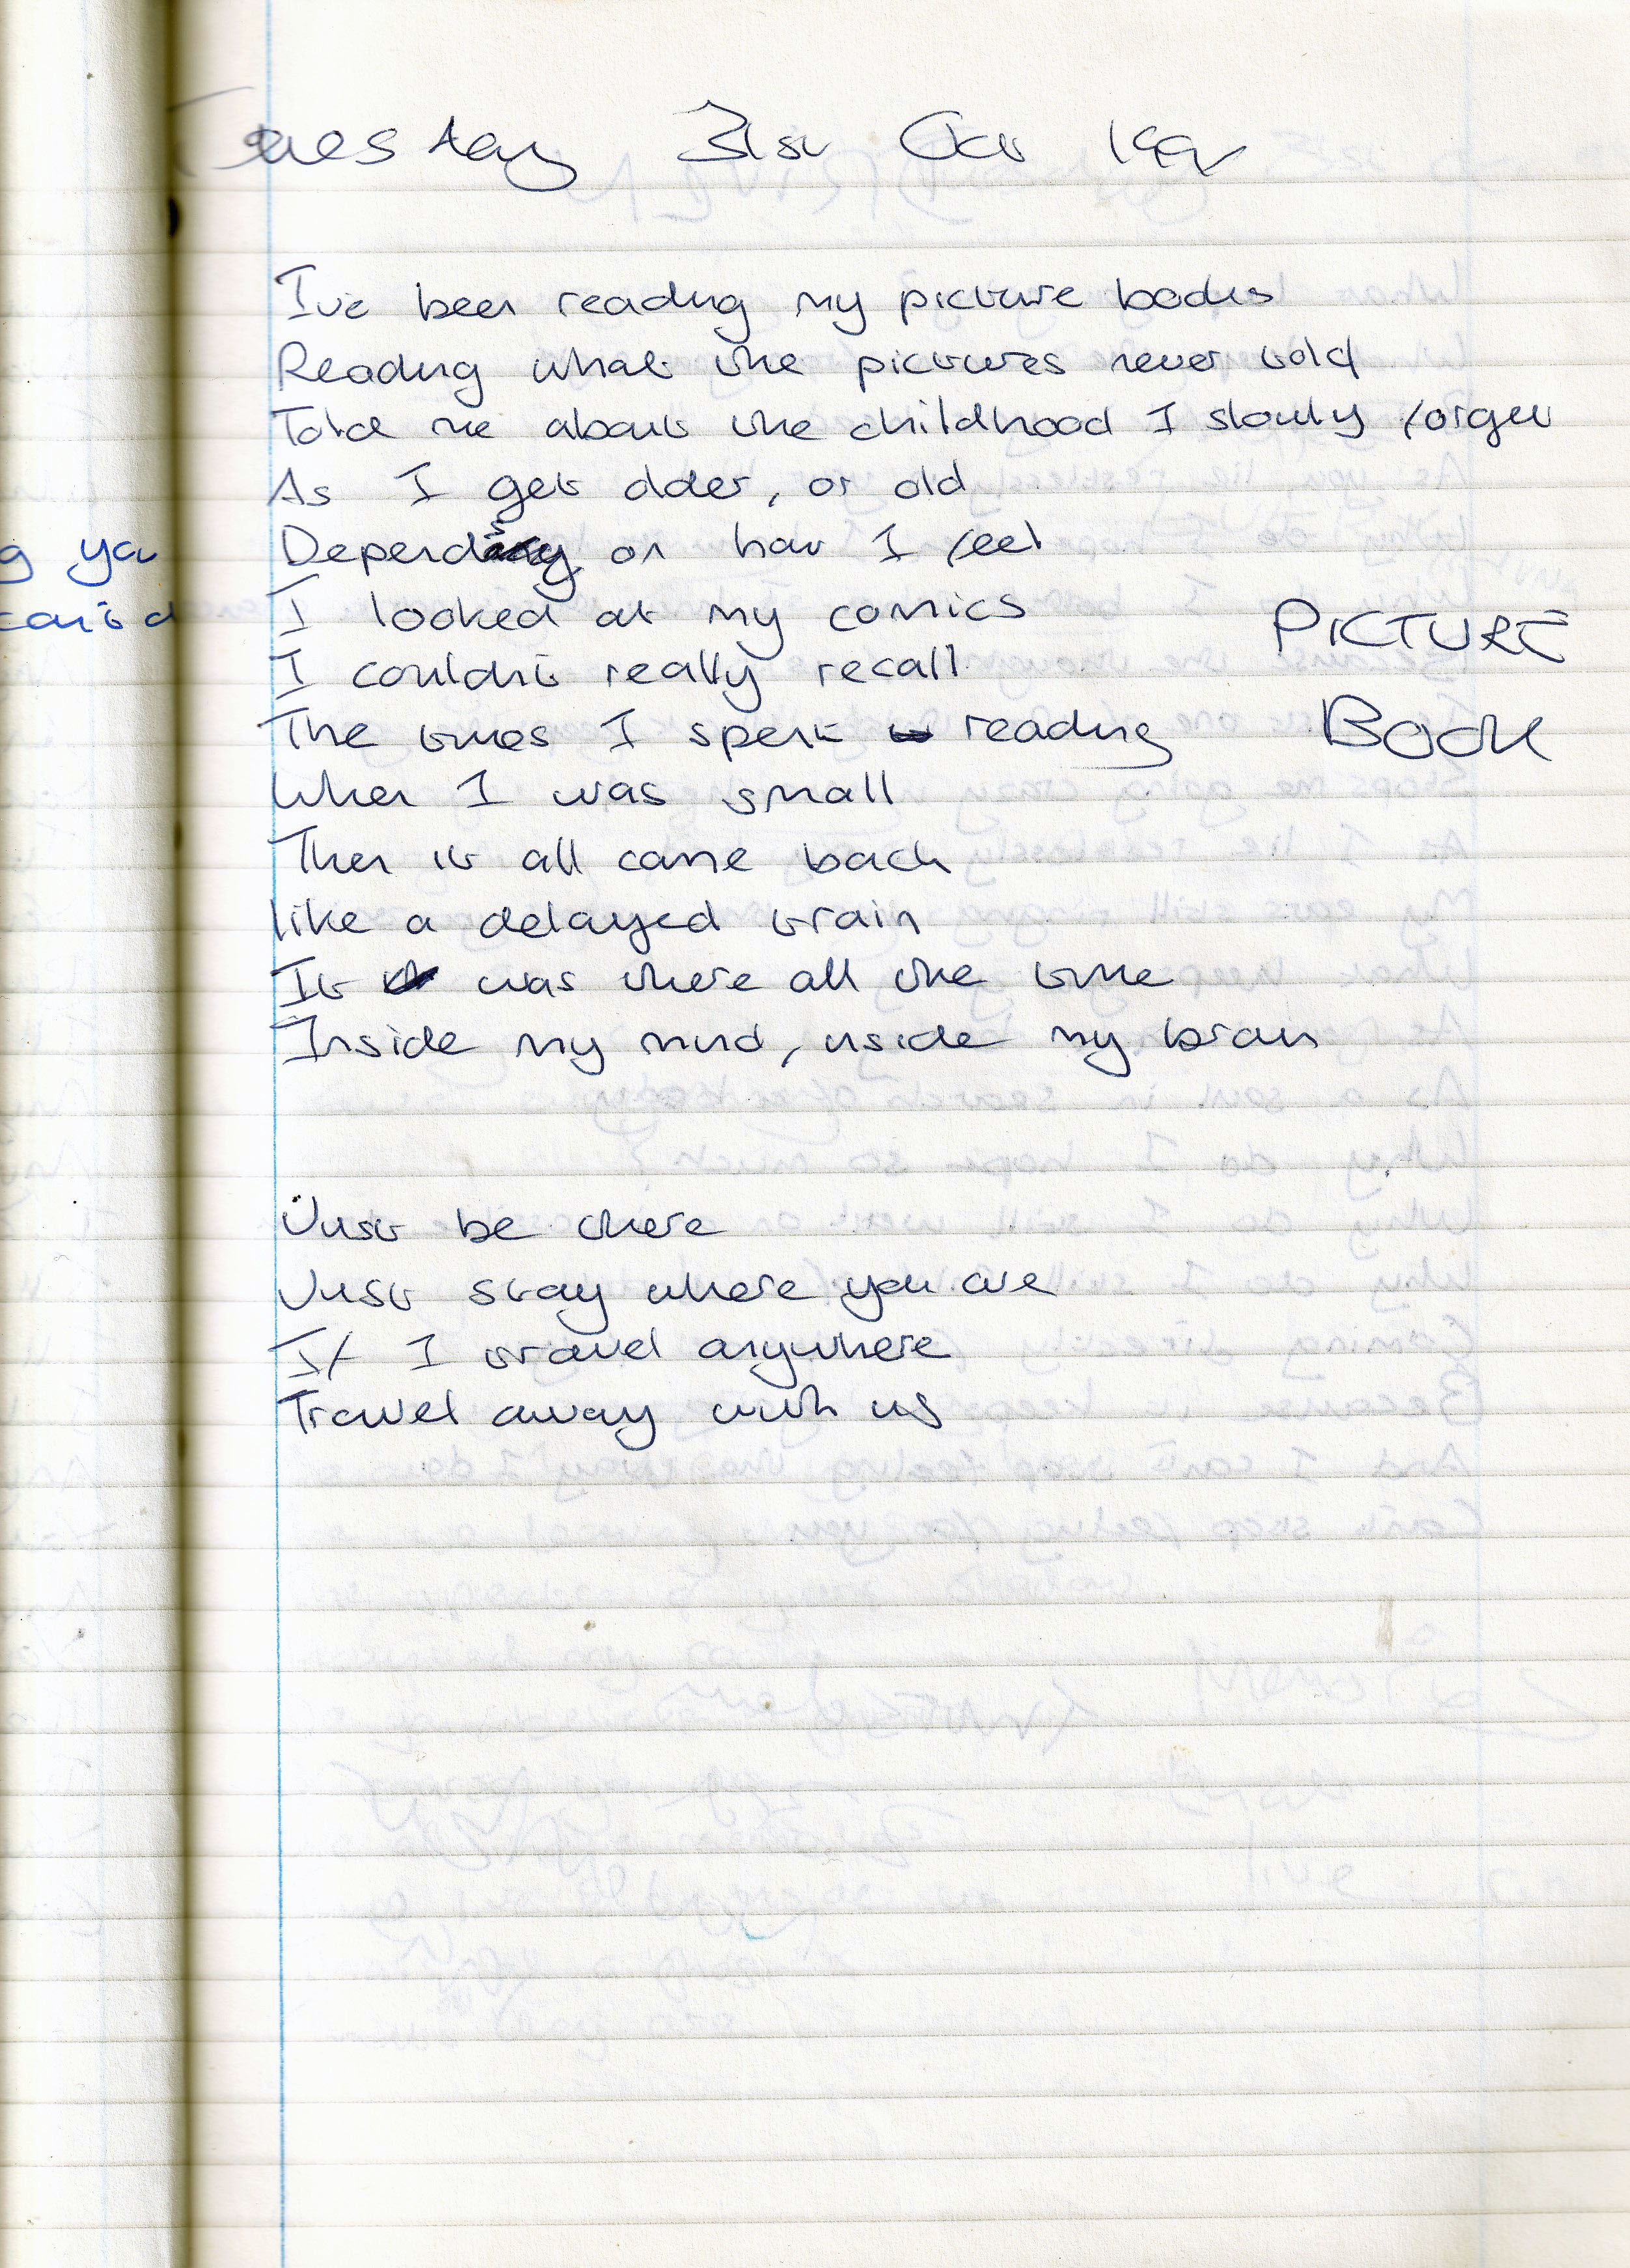 Tuesday 31st Oct
I've been reading my picture books
Reading what the pictures never told
Told me about the childhood I slowly forget
As I get older, or old
Depending on how I feel
I looked at my comics
PICTURE
I couldn't really recall
The times I spent reading
BOOK
When I was small
Then it all came back
like a delayed train
It was there all the time
Inside my mind, inside my brain
Just be there
Just stay where you are
If I travel anywhere
Travel away with us